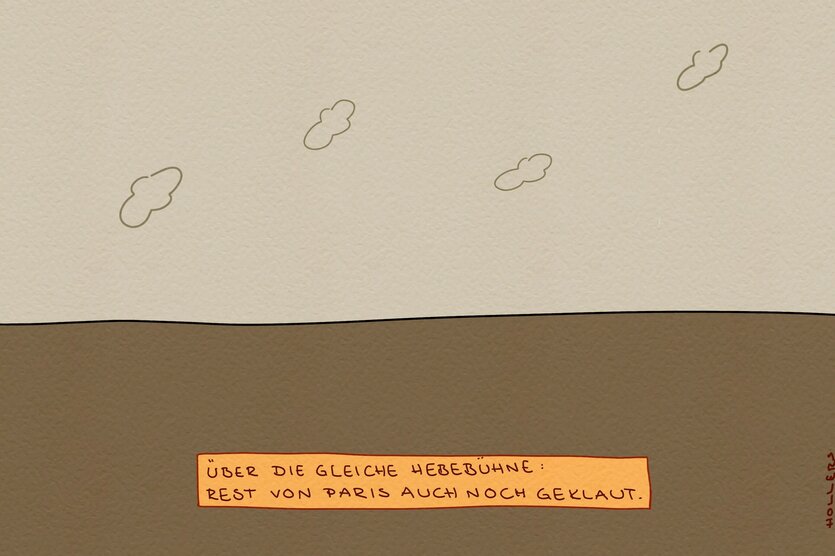 ÜBER DIE GLEICHE HEBEBÜHNE:
REST VON PARIS AUCH NOCH GEKLAUT.
HOLLERS